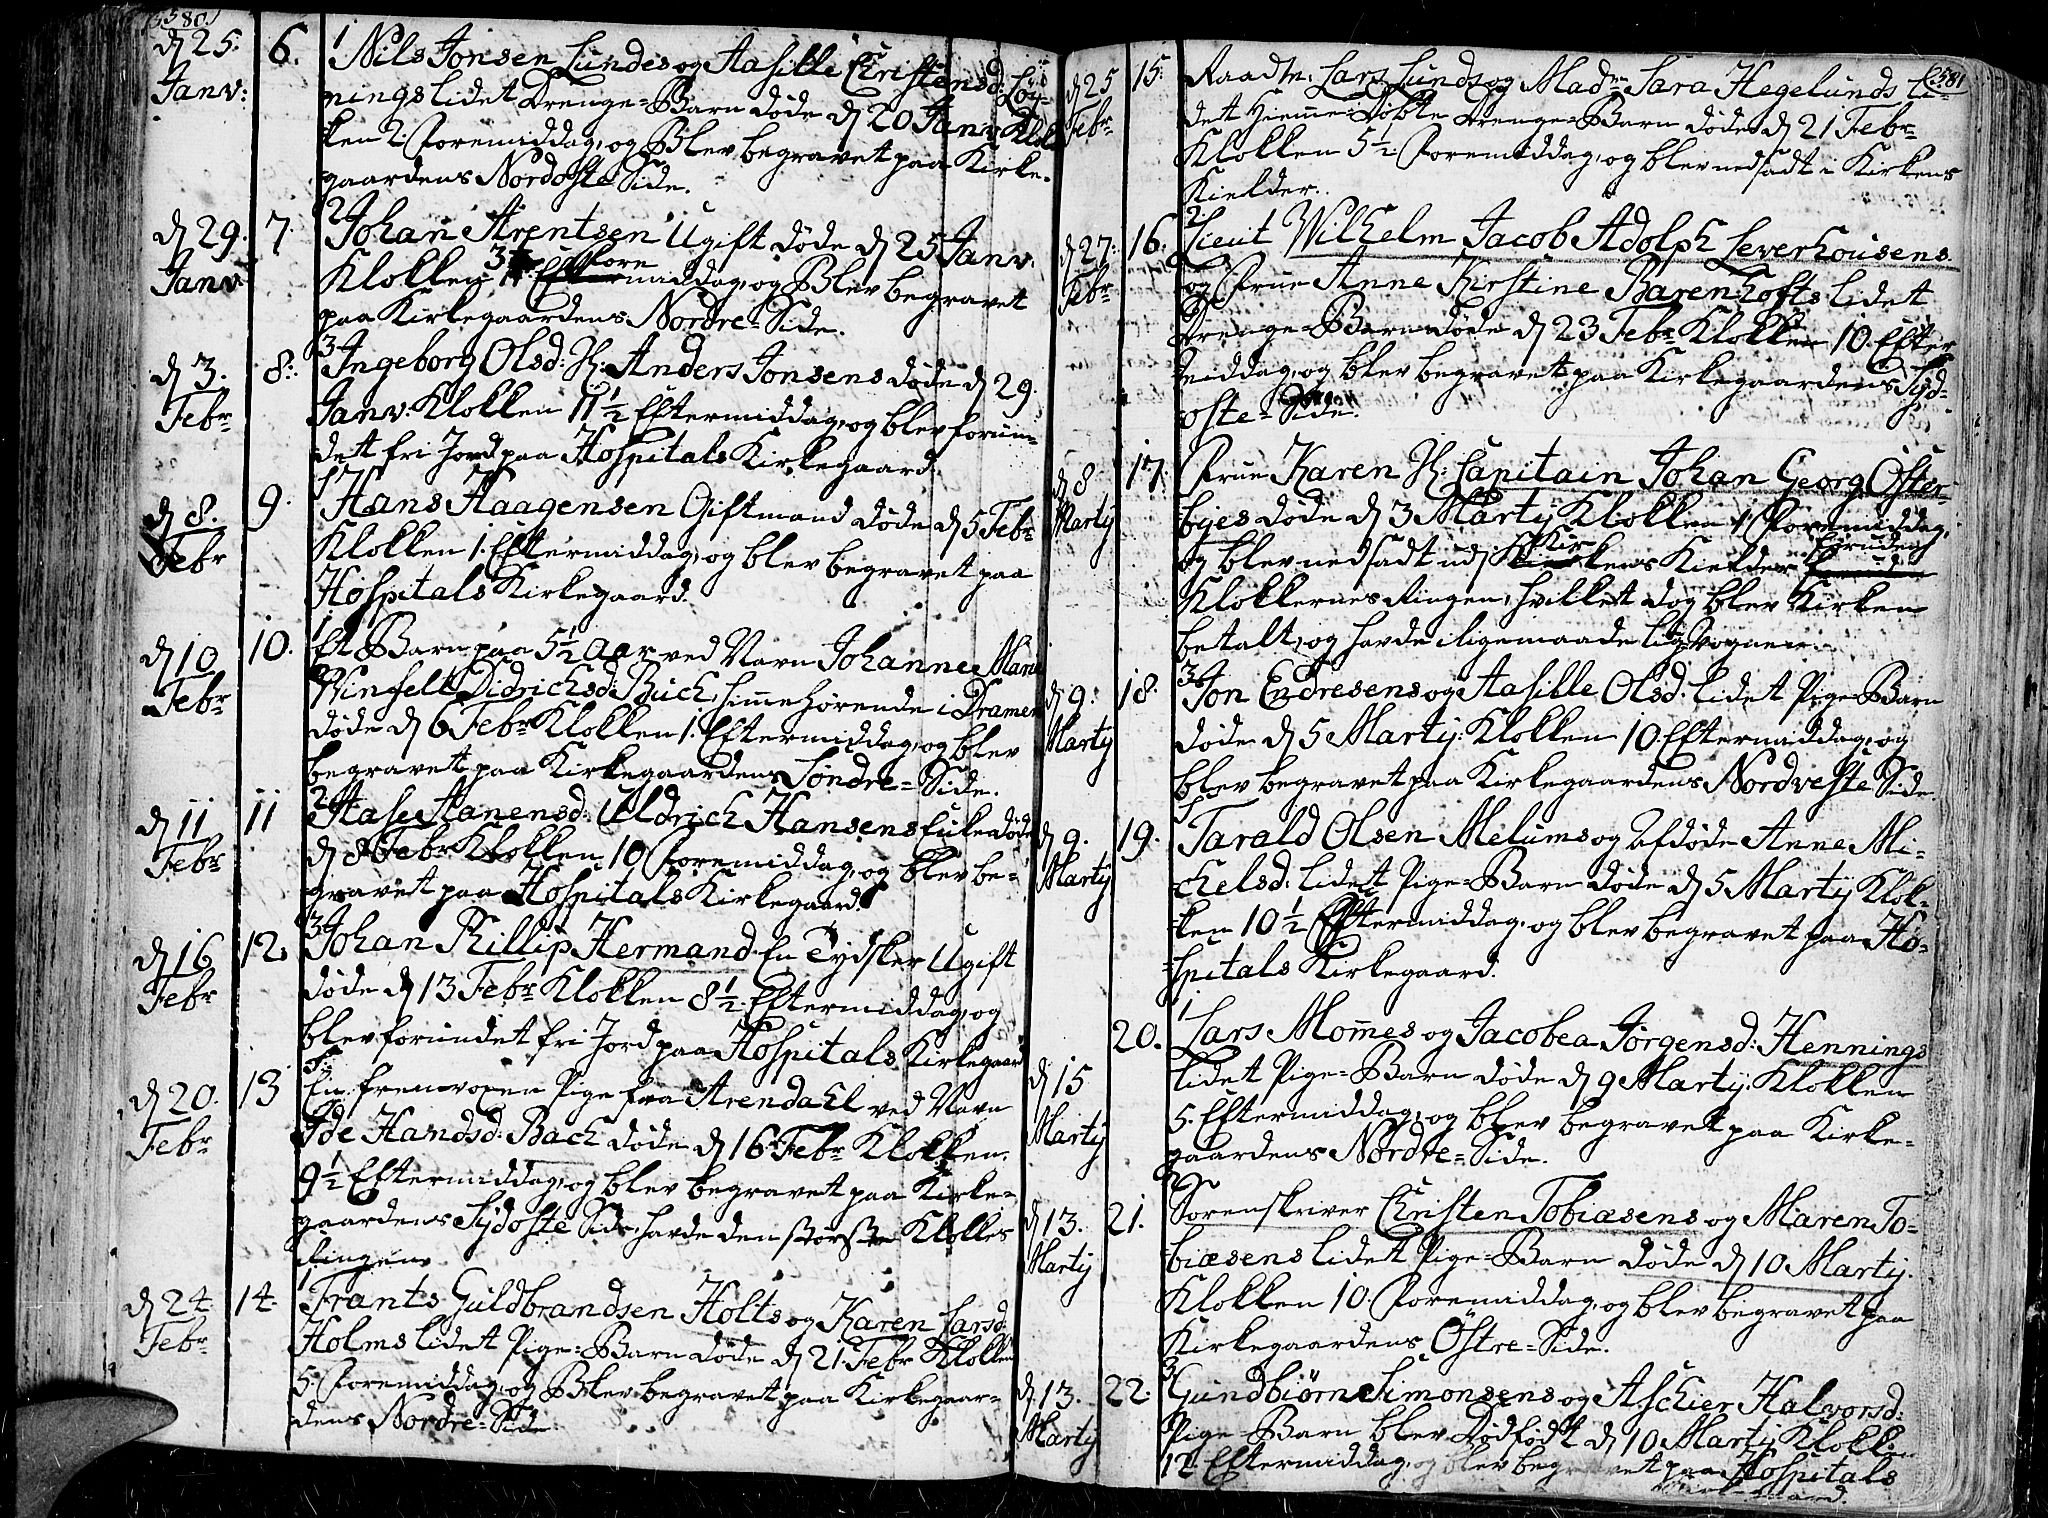 580.
d 25. Janv: 6. 1 Nils Jonsen Lundes og Aasille Christensd: Løy-
nings lidet Drenge-Barn døde d 20 Janv: Klok-
ken 2. Foremiddag, og Blev begravet paa Kirke-
gaardens Nordoste Side.
d 29. Janv: 7. 2 Johan Arentsen Ugift døde d 25 Janv.
Klokken 3½ Fore
middag, og Blev begravet
paa Kirkegaardens Nordre-Side.
d 3. Febr 8. 3 Ingeborg Olsd: H: Anders Jonsens døde d 29.
Janv: Klokken 11½ Eftermiddag, og blev forun-
det fri Jord paa Hospitals Kirkegaard.
d 8. Febr 9. 1 Hans Haagensen Giftmand døde d 5 Febr
Klokken 1. Eftermiddag, og blev begravet paa
Hospitals Kirkegaard.
d 10 Febr 10. 1 Et Barn paa 5½ Aar ved Navn Johanne Marie
Winfelt Didrichsd: Buch, hjemmehørende i Dramen
døde d 6 Febr Klokken 1. Eftermiddag, og blev
begravet paa Kirkegaardens Søndre-Side.
d 11 Febr 11 2 Aase Aanensd: Uldrich Hansens Enke døde
d 8 Febr Klokken 10 Foremiddag, og blev be-
gravet paa Hospitals Kirkegaard.
d 16 Febr 12. 3 Johan Phillip Hermand. En Tydsker Ugift
døde d 13 Febr Klokken 8½. Eftermiddag, og
blev forundet fri Jord paa Hospitals Kirkegaard
d 20. Febr 13 En fremvoxen Pige fra Arendahl ved Navn
Ide Handsd: Bach døde d 16 Febr Klokken
9½ Eftermiddag, og blev begravet paa Kirke-
gaardens Sydoste Side, havde den største Klokkes
Ringen
d 24. Febr 14. 1 Frants Guldbrandsen Holts og Karen Larsd:
Holms lidet Pige-Barn døde d 21. Febr Klokken
5. Foremiddag, og Blev begravet paa Kirkegaar-
dens Nordre-Side.
581
d 25 Febr 15. Raadm: Lars Lunds og Madm Sara Hegelunds li-
det Hjemme-Døbte Drenge-Barn døde d 21 Febr
Klokken 5½. Foremiddag, og blev nedsadt i Kirkens
Kielder.
d 27. Febr 16. 2 Lieut Wilhelm Jacob Adolph Leverhousens
og Frue Anne Kirstine Barenhofts lidet
Drenge-Barn døde d 23 Febr Klokken 10. Efter
middag, og blev begravet paa Kirkegaardens Syd-
oste-Side.
d 8 Martij 17. Frue Karen H: Capitain Johan Georg Øster-
byes døde d 3 Martij Klokken 1. Foremiddag,
og blev nedsadt udj Kirkens Kielder foruden
Klokkernes Ringen, hvilket dog blev Kirken
betalt, og havde iligemaade Lig Vognen.
d 9. Martij 18. 3 Jon Endresens og Aasille Olsd: lidet Pige-Barn
døde d 5 Martij: Klokken 10 Eftermiddag, og
blev begravet paa Kirkegaardens Nordveste Side.
d 9. Martij 19. Tarald Olsen Melums og Afdøde Anne Mi-
chelsd: lidet Pige-Barn døde d 5 Martij Klok-
ken 10½ Eftermiddag, og blev begravet paa Ho-
spitals Kirkegaard.
d 15 Martij 20. 1 Lars Mommes og Jacobea Jørgensd: Hennings
lidet Pige-Barn døde d 9 Martij: Klokken
5. Eftermiddag, og blev begravet paa Kirke-
gaardens Nordre-Side.
d 13. Martij 21. 2 Sorenskriver Christen Tobiæsens og Maren To-
biæsens lidet Pige-Barn døde d 10 Martij.
Klokken 10. Foremiddag, og blev begravet paa
Kirkegaardens Østre-Side.
d 13. Martij 22. 3 Gundbiørn Simonsens og Aschier Halvorsd:
Pige-Barn blev Dødfødt d 10 Martij Klokken
12. Eftermiddag, og blev begravet paa Hospitals
Kirkegaard.